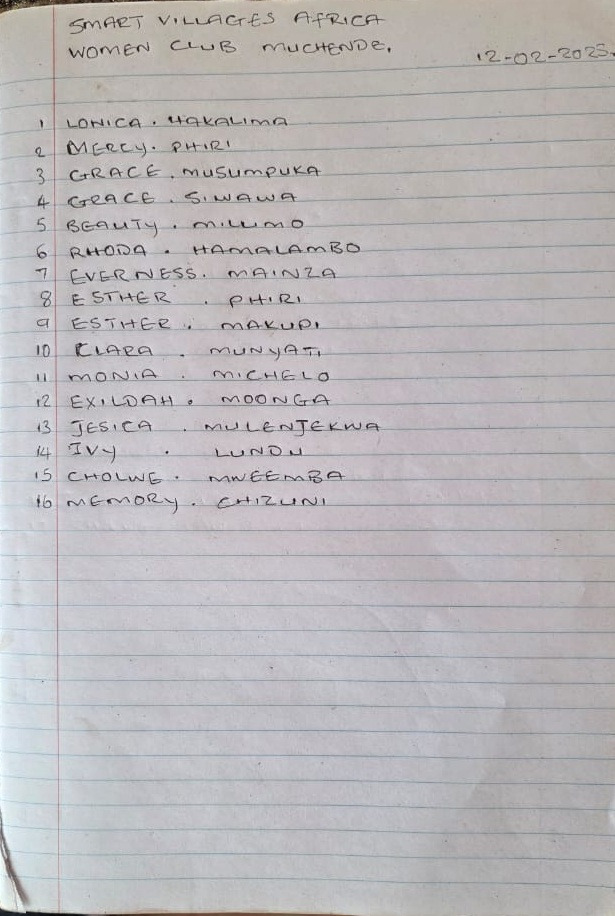 SMART VILLAGES AFRICA
WOMEN CLUB MUCHENDE. 12-02-2025.
1 LONICA . HAKALIMA
2 MERCY. PHIRI
3 GRACE . MUSUMPUKA
4 GRACE . SIWAWA
5 BEAUTY . MILIMO
6 RHODA . HAMALAMBO
7 EVERNESS. MAINZA
8 ESTHER . PHIRI
9 ESTHER . MAKUPI
10 CLARA . MUNYATI
11 MONIA . MICHELO
12 EXILDAH . MOONGA
13 JESICA . MULENJEKWA
14 IVY . LUNDU
15 CHOLWE . MWEEMBA
16 MEMORY . CHIZUNI